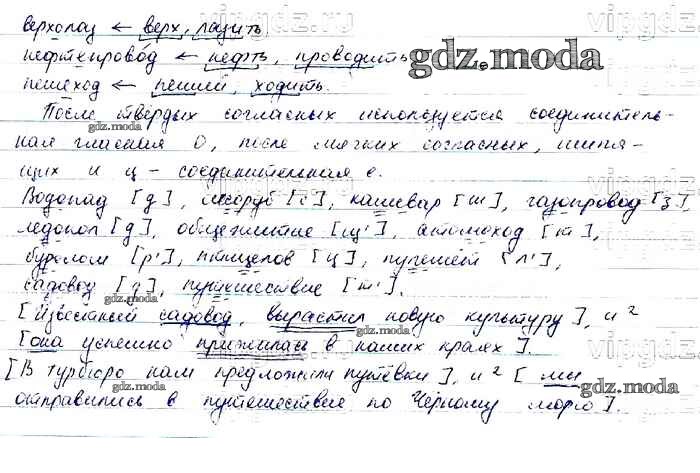 верхолаз ← верх, лазить
нефтепровод ← нефть, проводить
пешеход ← пеший, ходить.
После твёрдых согласных используется соединитель-
ная гласная О, после мягких согласных, шипя-
щих и ц – соединительная е.
Водопад [д], лесоруб [с], кашевар [ш], газопровод [з],
ледокол [д], общежитие [щ'], атомоход [м],
бурелом [р'], птицелов [ц], пулемёт [л'],
садовод [д], путешествие [т'].
[Известный садовод, вырастил новую культуру], и ²
[она успешно прижилась в наших краях].
[В турбюро нам предложили путёвки], и ² [мы
отправились в путешествие по Чёрному морю].
gdz.moda
gdz.moda
gdz.moda
gdz.moda
gdz.moda
gdz.moda
vipgdz